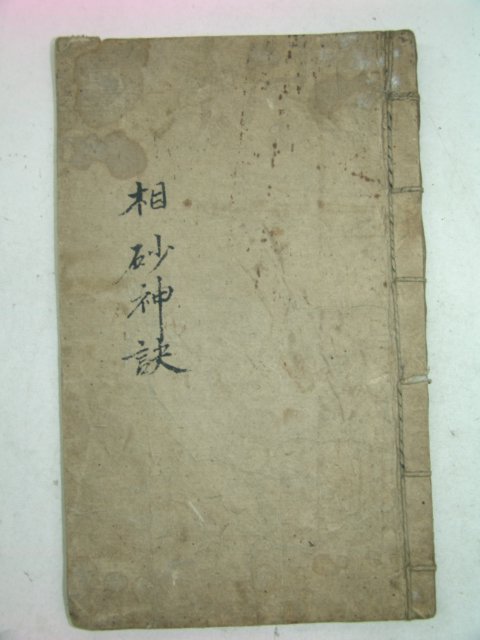 相砂神訣